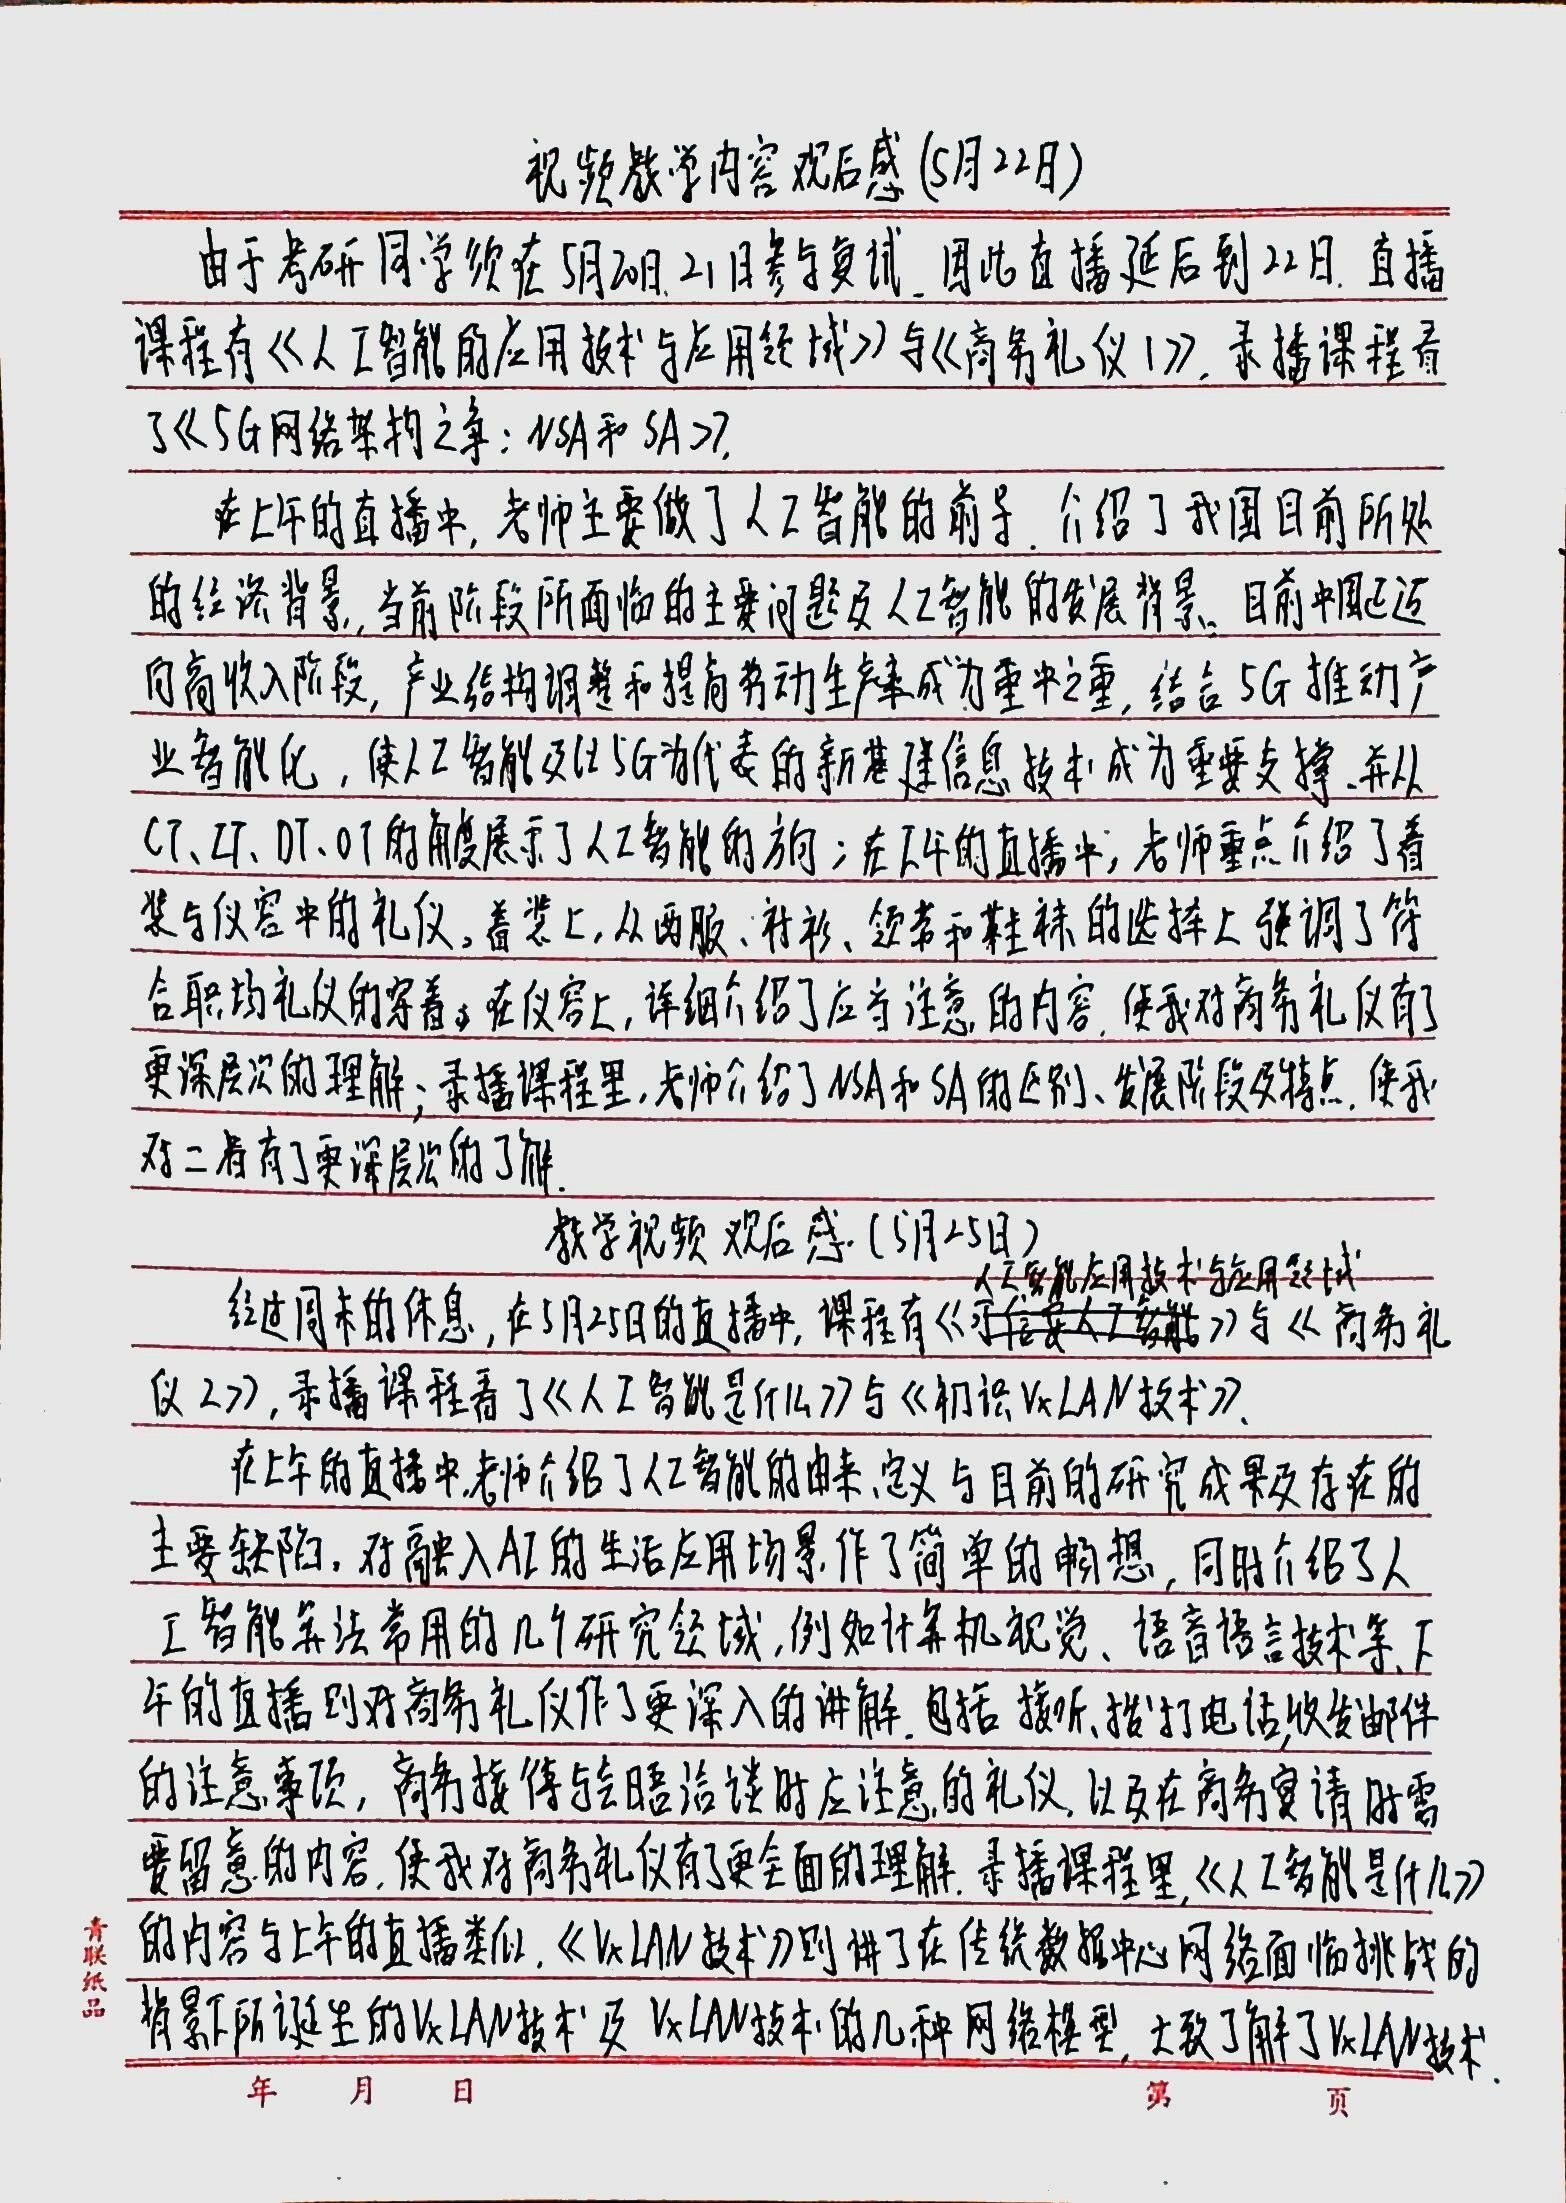 视频教学内容观后感(5月22日)
由于考研同学须在5月20日、21日参与复试，因此直播延后到22日. 直播
课程有《人工智能的应用技术与应用领域》与《商务礼仪1》，录播课程看
了《5G网络架构之争：NSA和SA》.
在上午的直播中，老师主要做了人工智能的前导，介绍了我国目前所处
的经济背景，当前阶段所面临的主要问题及人工智能的发展背景。目前中国正迈
向高收入阶段，产业结构调整和提高劳动生产率成为重中之重，结合5G推动产
业智能化，使人工智能及以5G为代表的新基建信息技术成为重要支撑.并从
CT、IT、DT、OT的角度展示了人工智能的方向；在下午的直播中，老师重点介绍了着
装与仪容中的礼仪。着装上，从西服、衬衫、领带和鞋袜的选择上强调了符
合职场礼仪的穿着，在仪容上，详细介绍了应当注意的内容，使我对商务礼仪有了
更深层次的理解；录播课程里，老师介绍了NSA和SA的区别、发展阶段及特点，使我
对二者有了更深层次的了解.
教学视频观后感(5月25日)
人工智能应用技术与应用领域
经过周末的休息，在5月25日的直播中，课程有《可信安人工智能》与《商务礼
仪2》，录播课程看了《人工智能是什么》与《初识VxLAN技术》.
在上午的直播中，老师介绍了人工智能的由来、定义与目前的研究成果及存在的
主要缺陷，对融入AI的生活应用场景作了简单的畅想，同时介绍了人
工智能算法常用的几个研究领域，例如计算机视觉、语音语言技术等、下
午的直播则对商务礼仪作了更深入的讲解，包括接听、拨打电话，收发邮件
的注意事项，商务接待与会晤洽谈时应注意的礼仪，以及在商务宴请时需
要留意的内容，使我对商务礼仪有了更全面的理解. 录播课程里，《人工智能是什么》
的内容与上午的直播类似，《VxLAN技术》则讲了在传统数据中心网络面临挑战的
背景下所诞生的VxLAN技术及VxLAN技术的几种网络模型，大致了解了VxLAN技术.
青联纸品
年 月 日 第 页